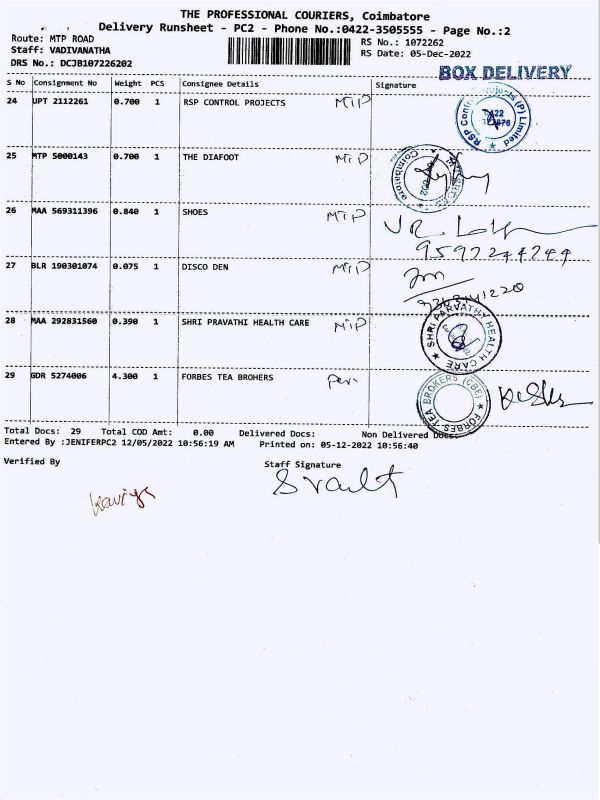 THE PROFESSIONAL COURIERS, Coimbatore
Delivery Runsheet - PC2 - Phone No.:0422-3505555 - Page No.:2
Route: MTP ROAD
Staff: VADIVANATHA
DRS No.: DCJB107226202
RS No.: 1072262
RS Date: 05-Dec-2022
BOX DELIVERY
S No Consignment No Weight PCS Consignee Details Signature
24 UPT 2112261 0.700 1 RSP CONTROL PROJECTS MTP
RSP Control Projects (P) Limited
25 MTP 5000143 0.700 1 THE DIAFOOT MTP
Coimbatore
26 MAA 569311396 0.840 1 SHOES MTP
27 BLR 190301074 0.075 1 DISCO DEN MTP
28 MAA 292831560 0.390 1 SHRI PRAVATHI HEALTH CARE MTP
SHRI PARVATHY HEALTH CARE
29 GDR 5274006 4.300 1 FORBES TEA BROHERS
FORBES TEA BROKERS (CBE)
Total Docs: 29 Total COD Amt: 0.00 Delivered Docs: Non Delivered Docs:
Entered By :JENIFERPC2 12/05/2022 10:56:19 AM Printed on: 05-12-2022 10:56:40
Verified By Staff Signature